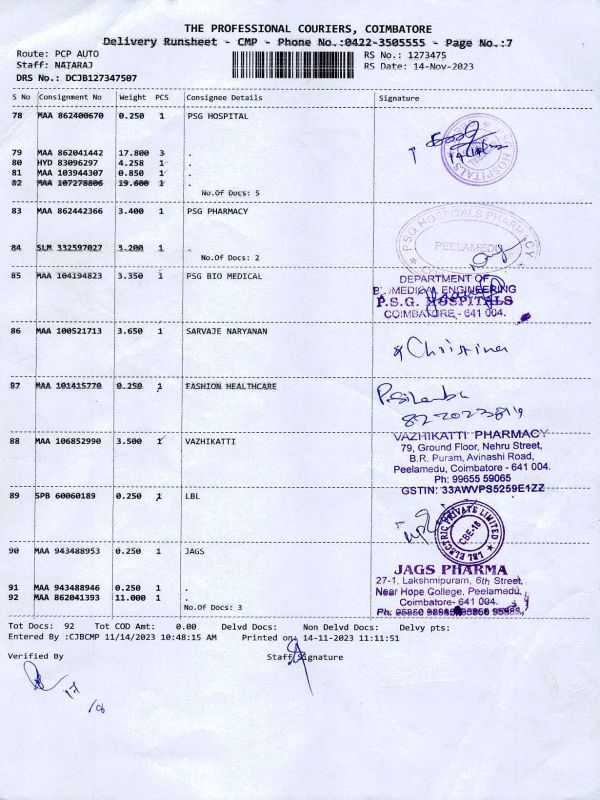 THE PROFESSIONAL COURIERS, COIMBATORE
Delivery Runsheet - CMP - Phone No.:0422-3505555 - Page No.:7
Route: PCP AUTO RS No.: 1273475
Staff: NATARAJ RS Date: 14-Nov-2023
DRS No.: DCJB127347507
S No Consignment No Weight PCS Consignee Details Signature
78 MAA 862400670 0.250 1 PSG HOSPITAL
79 MAA 862041442 17.800 3 .
80 HYD 83096297 4.258 1 .
81 MAA 103944307 0.850 1 .
82 MAA 107278806 19.600 1 .
No.Of Docs: 5
HOSPITALS
83 MAA 862442366 3.400 1 PSG PHARMACY
PSG HOSPITALS PHARMACY
PEELAMEDU
84 SLM 332597027 3.200 1 .
No.Of Docs: 2
85 MAA 104194823 3.350 1 PSG BIO MEDICAL
DEPARTMENT OF
MEDICAL ENGINEERING
P.S.G. HOSPITALS
COIMBATORE - 641 004.
86 MAA 100521713 3.650 1 SARVAJE NARYANAN
Christina
87 MAA 101415770 0.250 1 FASHION HEALTHCARE
88 MAA 106852990 3.500 1 VAZHIKATTI
VAZHIKATTI PHARMACY
79, Ground Floor, Nehru Street,
B.R. Puram, Avinashi Road,
Peelamedu, Coimbatore - 641 004.
Ph: 99655 59065
GSTIN: 33AWVPS5259E1ZZ
89 SPB 60060189 0.250 1 LBL
LBL ELECTRIC PRIVATE LIMITED
CBE-18
90 MAA 943488953 0.250 1 JAGS
JAGS PHARMA
27-1, Lakshmipuram, 6th Street,
Near Hope College, Peelamedu,
Coimbatore- 641 004.
91 MAA 943488946 0.250 1 .
92 MAA 862041393 11.000 1 .
No.Of Docs: 3
Tot Docs: 92 Tot COD Amt: 0.00 Delvd Docs: Non Delvd Docs: Delvy pts:
Entered By :CJBCMP 11/14/2023 10:48:15 AM Printed on: 14-11-2023 11:11:51
Verified By Staff Signature